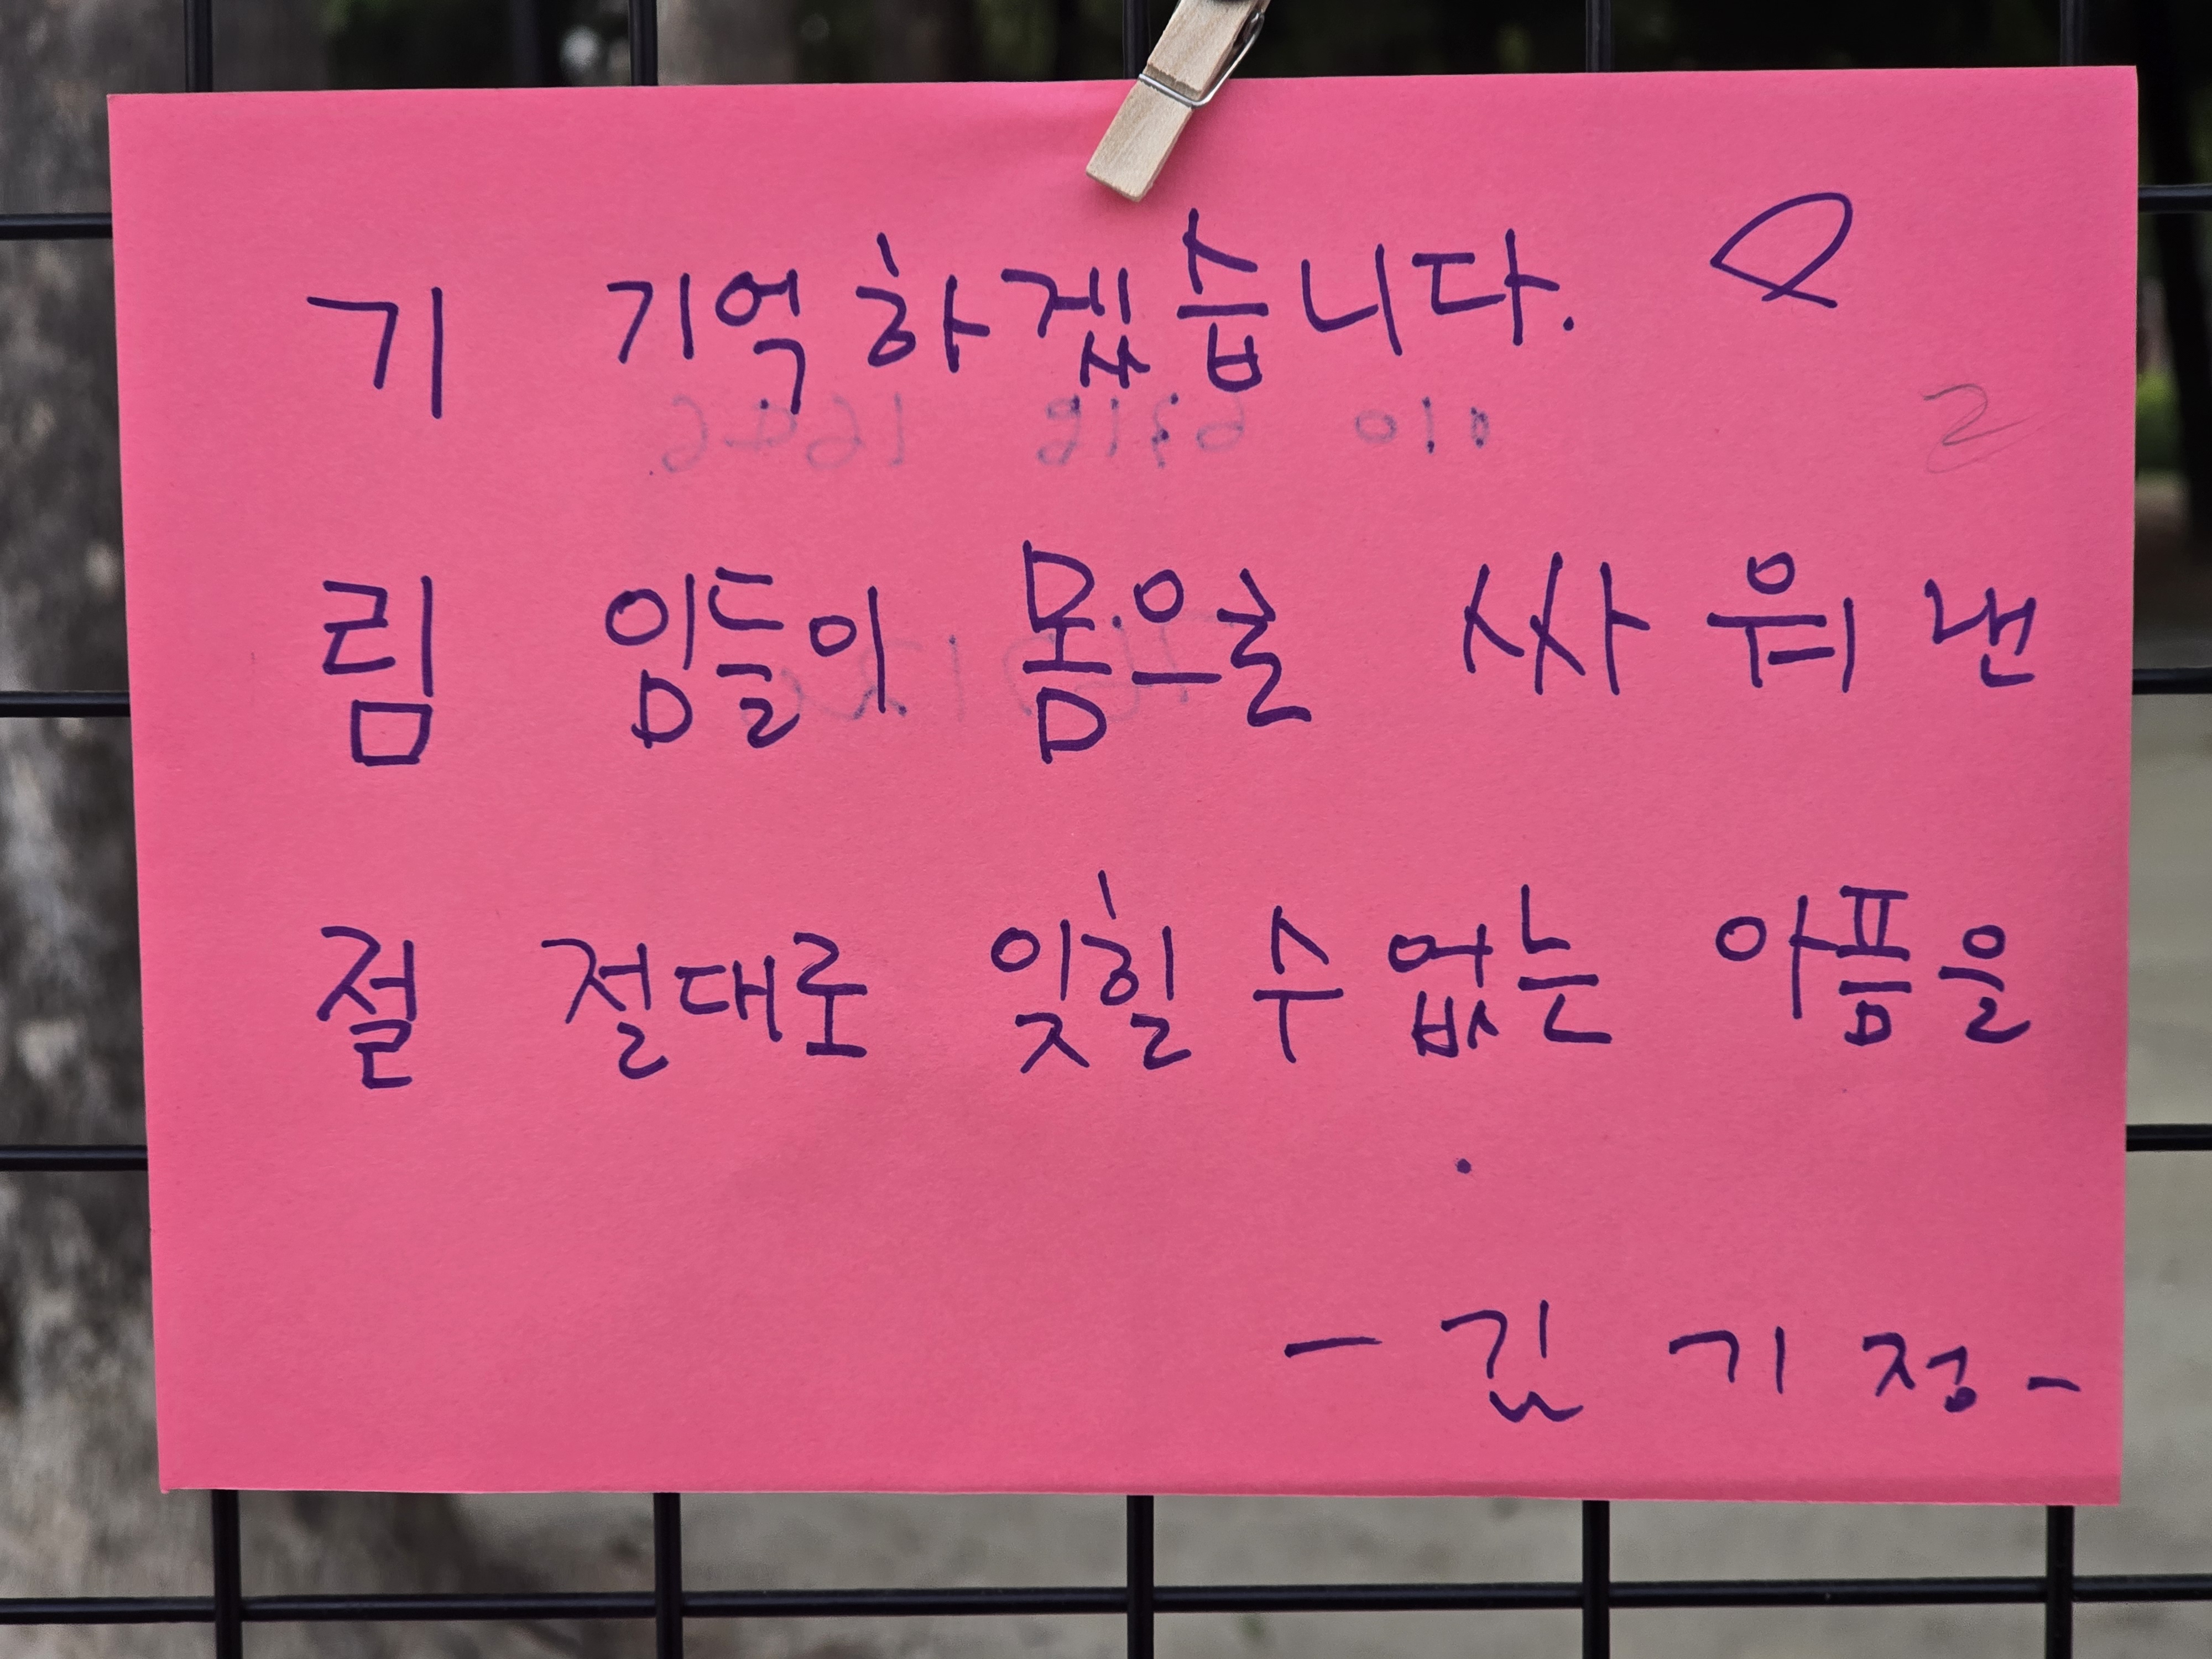 기 기억하겠습니다.
림 임들이 몸으로 싸워낸
절 절대로 잊힐 수 없는 아픔을
- 김 기 정 -